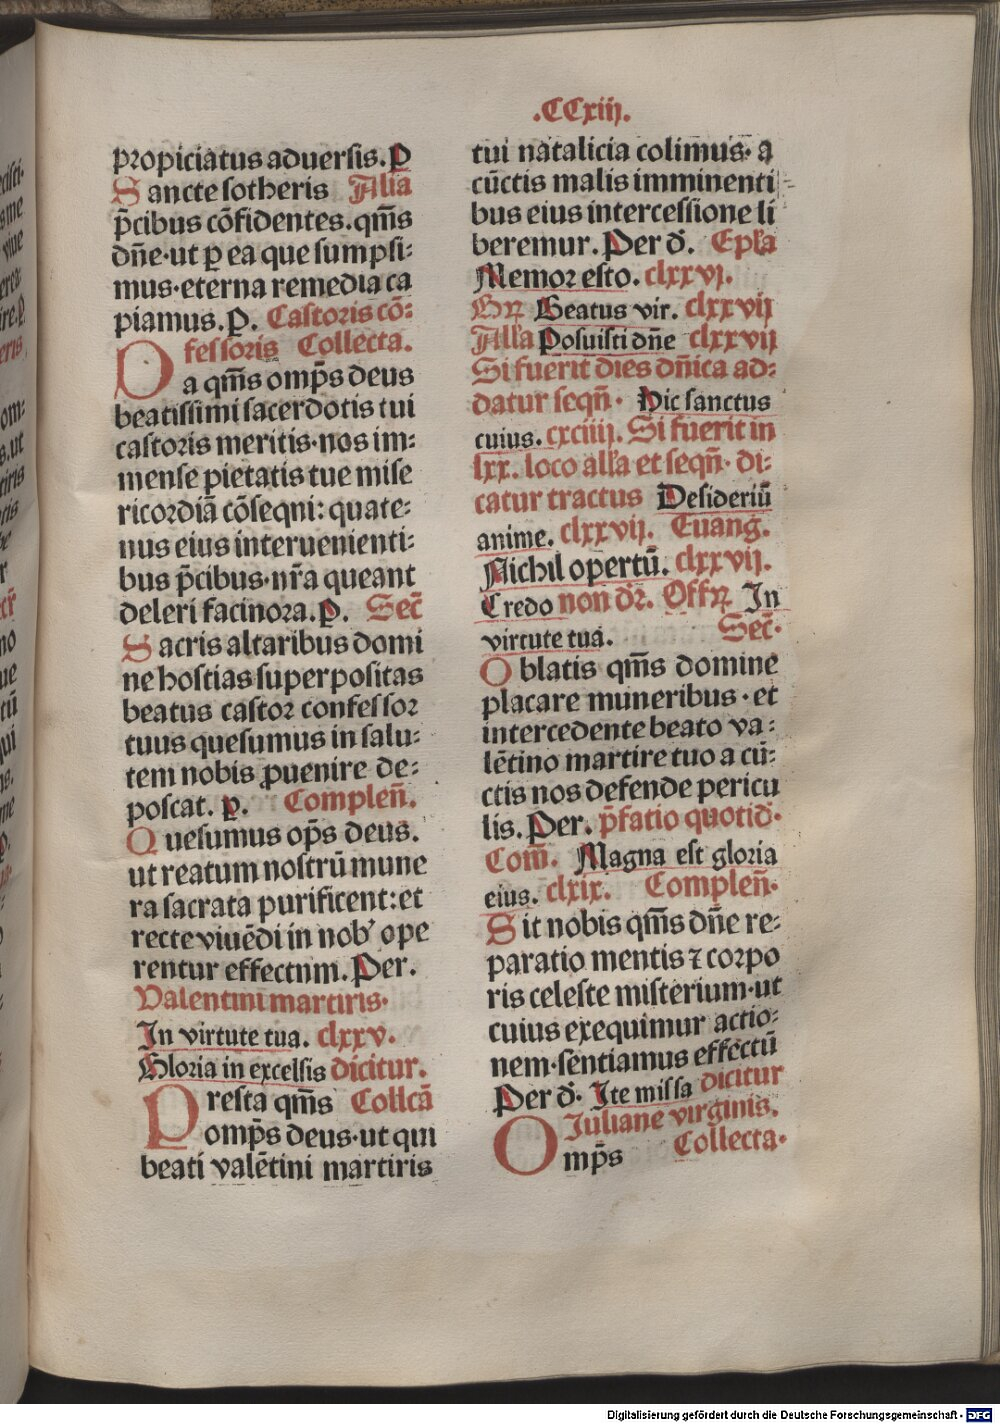 .CCxiij.
propiciatus aduersis. P
Sancte sotheris Alia
p̄cibus cōfidentes. qm̄s
dn̄e·ut ꝑ ea que sumpsi-
mus·eterna remedia ca
piamus. P. Castoris cō-
fessoris Collecta.
Da qm̄s omp̄s deus
beatissimi sacerdotis tui
castoris meritis·nos im-
mense pietatis tue mise
ricordiā cōseqni: quate-
nus eius interuenienti-
bus p̄cibus·nr̄a queant
deleri facinora. P. Sec̄
Sacris altaribus domi
ne hostias superpositas
beatus castor confessor
tuus quesumus in salu-
tem nobis ꝓuenire de-
poscat. P. Complen̄.
Quesumus op̄s deus.
ut reatum nostrū mune
ra sacrata purificent: et
recte viuēdi in nob' ope
rentur effectnm. Per.
Valentini martiris·
In virtute tua. clxxv.
Gloria in excelsis dicitur.
Presta qm̄s Collcā
omp̄s deus·ut qui
beati valētini martiris
tui natalicia colimus· a
cūctis malis imminenti
bus eius intercessione li
beremur. Per d̄. Epl̄a
Memor esto. clxxvj.
Gr̄ Beatus vir. clxxvij
Alla Posuisti dn̄e clxxvij
Si fuerit dies dn̄ica ad-
datur seqn̄· Hic sanctus
cuius. cxciiij. Si fuerit in
lxx. loco all̄a et seqn̄· di-
catur tractus Desideriū
anime. clxxvij. Euang.
Nichil opertū. clxxvij.
Credo non dr̄. Offr̄ In
virtute tua. Sec̄·
Oblatis qm̄s domine
placare muneribus· et
intercedente beato va-
lētino martire tuo a cū-
ctis nos defende pericu
lis. Per. p̄fatio quotid̄·
Com̄. Magna est gloria
eius. clxix. Complen̄·
Sit nobis qm̄s dn̄e re-
paratio mentis ⁊ corpo
ris celeste misterium·ut
cuius exequimur actio-
nem·sentiamus effectū
Per d̄· Ite missa dicitur
Juliane virginis.
Omp̄s Collecta·
Digitalisierung gefördert durch die Deutsche Forschungsgemeinschaft - DFG